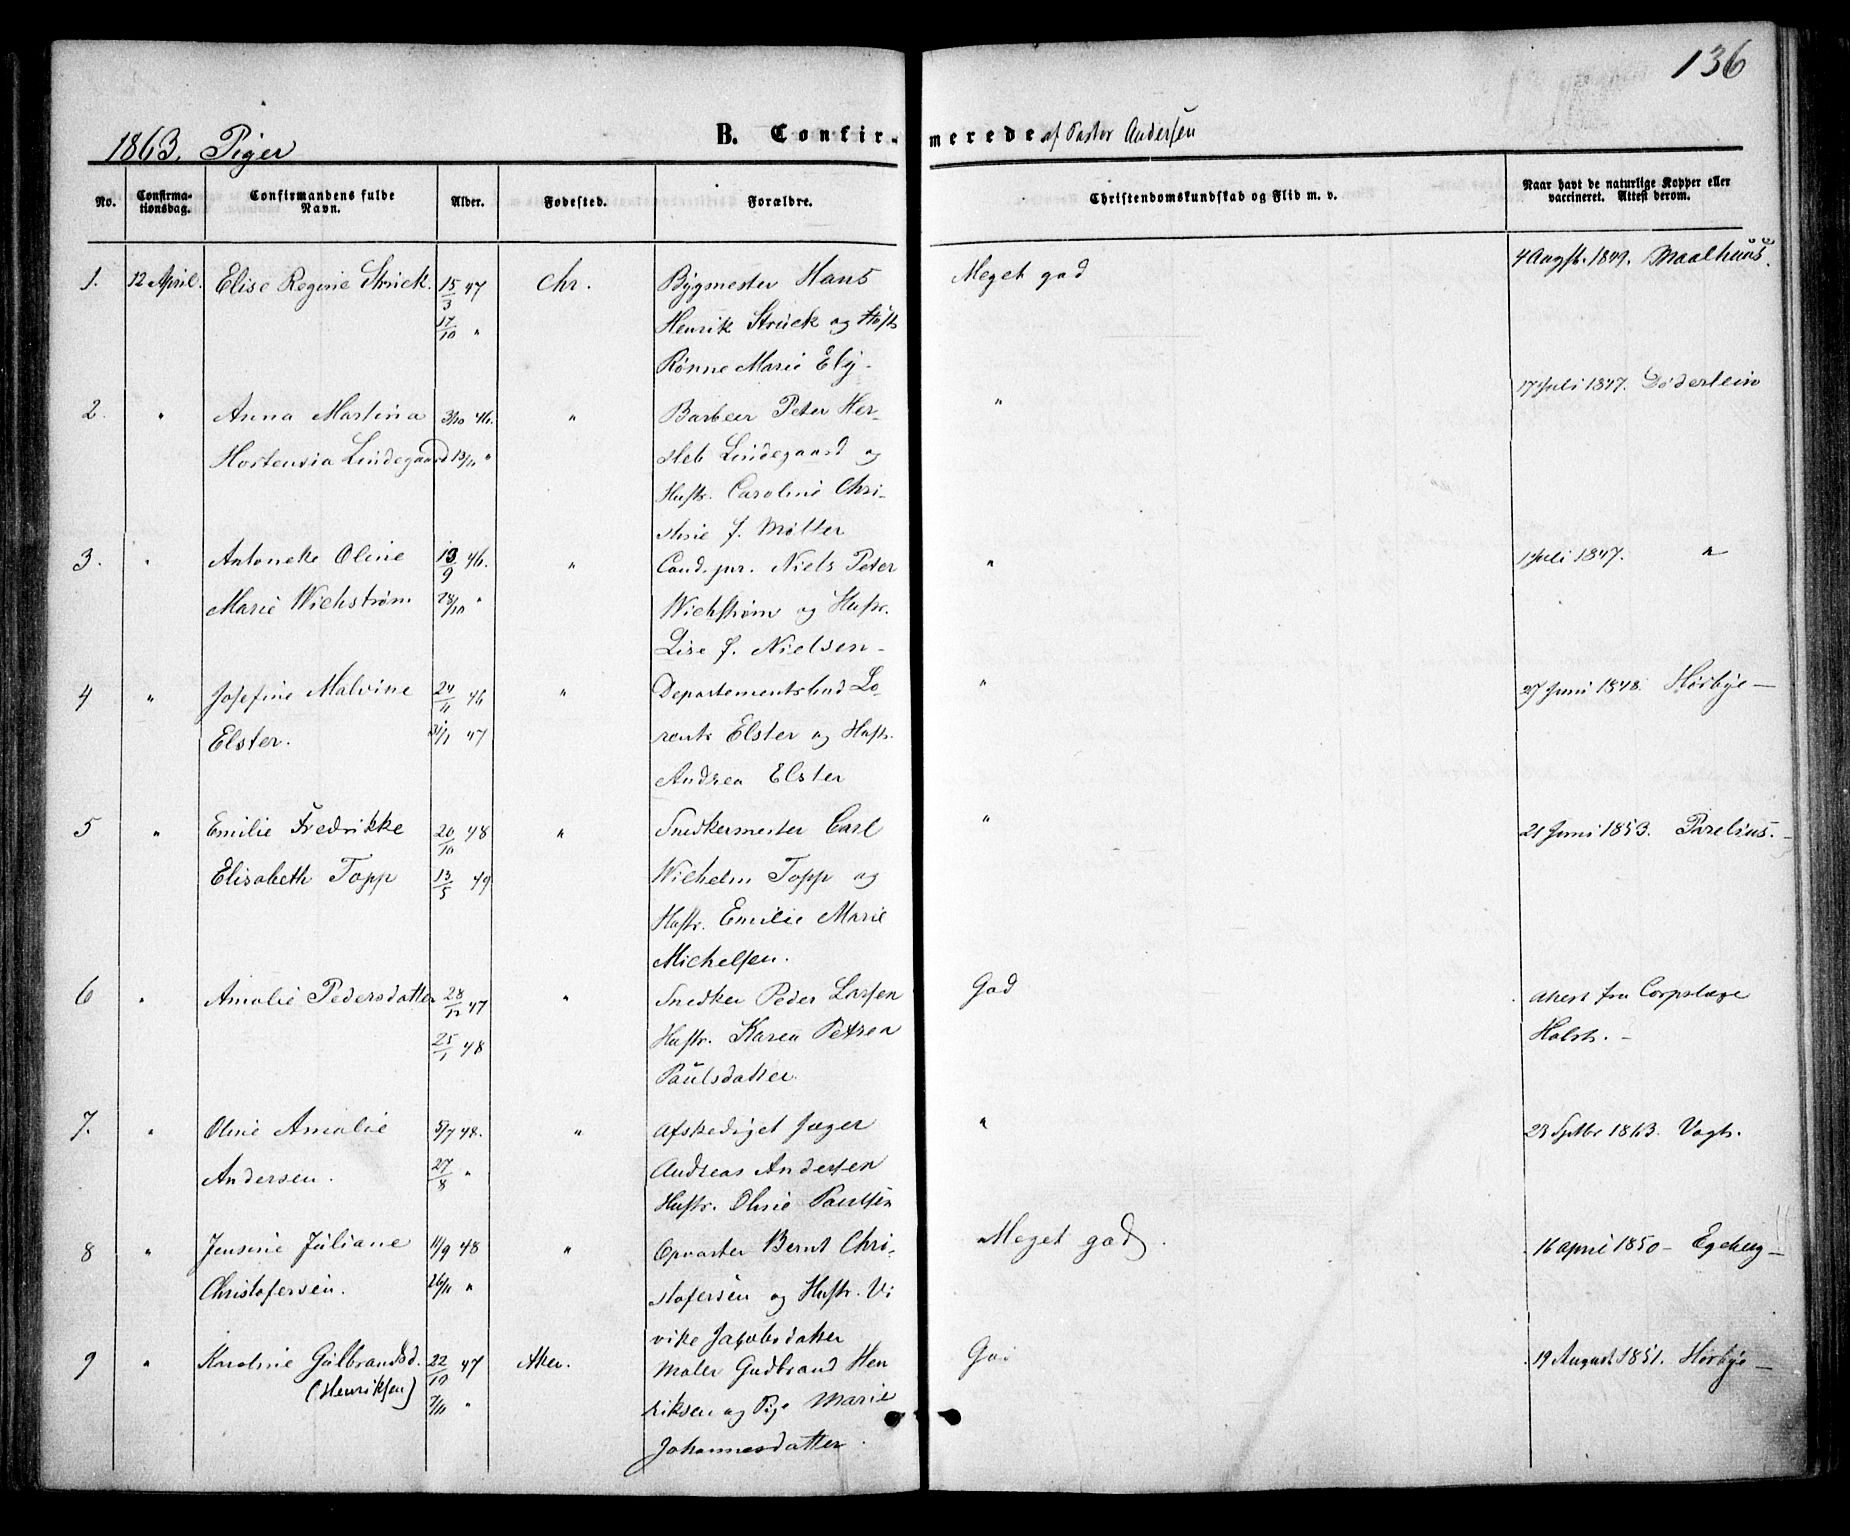 136
1863. Piger
B. Confirmerede af Pastor Andersen
No.
Confirmationsdag.
Confirmandens fulde Navn.
Alder.
Fødested.
Forældre.
Christendomskundskab og Flid m. v.
Naar havt de naturlige Kopper eller vaccineret. Attest derom.
1. 12 April. Elise Regine Strück. 15/3 47 Chr. Bygmester Hans Meget god 4 Augst. 1849. Maalhuus.
17/10 " Henrik Strück og Hust.
Rønne Marie Ely.
2. " Anna Martina 3/10 46. " Barbeer Peter Her- " 17 Juli 1847. Døderlein
Hortensia Lindegaard 13/11 " sleb Lindegaard og
Hustr. Caroline Chri-
stine f. Møller
3. " Oline 19/9 46. " Cand. jur. Niels Peter " 1 Juli 1847. "
Marie Wichstrøm 28/10 " Wichstrøm og Hustr.
Lise f. Nielsen -
4 " Josefine Malvine 24/11 46 " Departementsbud Lo- " 27 Juni 1848. Hørbye -
Elster. 31/1 47 rents Elster og Hustr.
Andrea Elster
5 " Emilie Fredrikke 20/10 48 " Snedkermester Carl " 21 Juni 1853. Parelius. -
Elisabeth Topp 13/5 49 Wilhelm Topp og
Hustr. Emilie Marie
Michelsen.
6 " Amalie Pedersdatter 28/12 47 " Snedker Peder Larsen God Attest fra Corpslæge
25/1 48 Hustr. Karen Petrea Holst. -
Paulsdatter.
7. " Oline Amalie 5/7 48. " Afskediget Jæger " 23 Septbr 1863. Vogt.
Andersen. 27/8 " Andreas Andersen
Hustr. Oline Paulsen
8 " Jensine Juliane 11/9 48 " Opvarter Bernt Chri- Meget god. 16 April 1850 - Egeberg -
Christofersen. 26/11 " stofersen og Hustr. Vi
vike Jacobsdatter
9 " Karoline Gulbrandsd. 22/10 47 Aker. Maler Gudbrand Hen God 19 August 1851. Hørbye -
(Henriksen) 7/11 " riksen og Pige Marie
Johannesdatter.